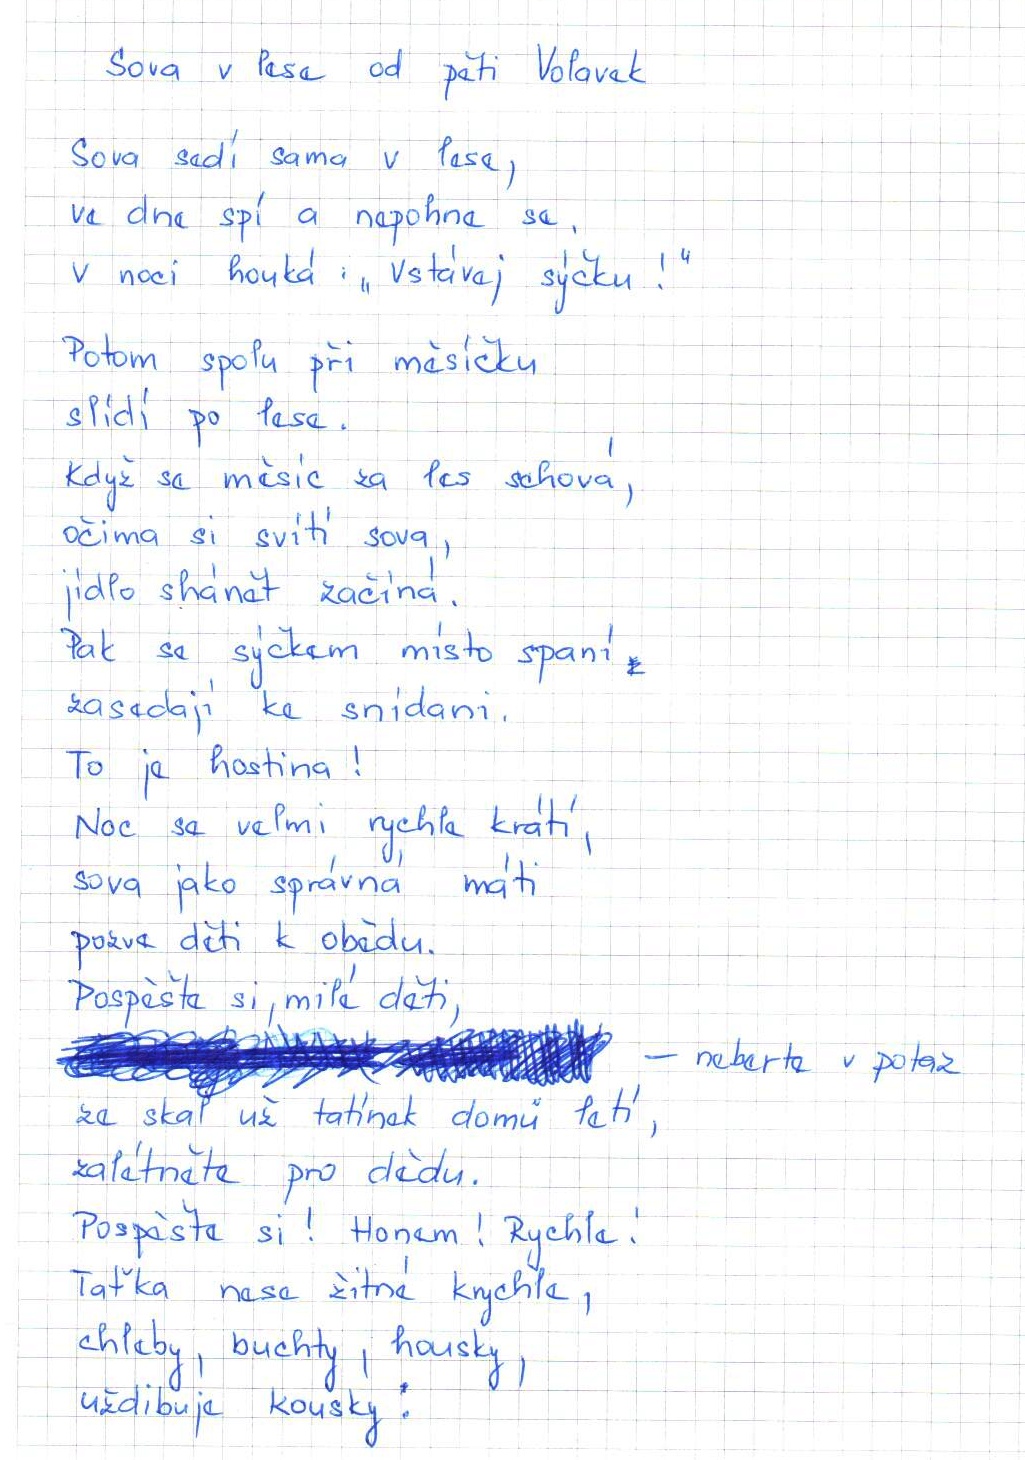 Sova v lese od pěti Volavek
Sova sedí sama v lese,
ve dne spí a nepohne se.
V noci houká: „Vstávej sýčku!“
Potom spolu při měsíčku
slídí po lese.
Když se měsíc za les schová,
očima si svítí sova,
jídlo shánět začíná.
Pak se sýčkem místo spaní
zasedají ke snídani.
To je hostina!
Noc se velmi rychle krátí,
sova jako správná máti
pozve děti k obědu.
Pospěšte si, milé děti,
— neberte v potaz
ze skal už tatínek domů letí,
zalétněte pro dědu.
Pospěšte si! Honem! Rychle!
Taťka nese žitné krychle,
chleby, buchty, housky,
uždibuje kousky.